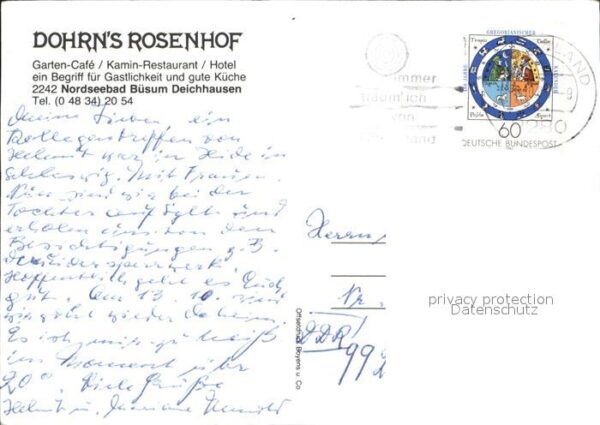 DOHRN'S ROSENHOF
Garten-Café / Kamin-Restaurant / Hotel
ein Begriff für Gastlichkeit und gute Küche
2242 Nordseebad Büsum Deichhausen
Tel. (0 48 34) 20 54
Meine Lieben ein
Kollegentreffen von
Helmut war in Heide in
Schleswig. Mit Frauen.
Nun sind wir bei der
Tochter auf Sylt und
erholen uns von den
Besichtigungen z. B.
Eidersperrwerk
Hoffentlich geht es Euch
gut. Am 13. 10. sind
wir wieder daheim.
Es ist heiß
im Moment über
20°. Viele Grüße
Helmut u.
GREGORIANISCHER
60
DEUTSCHE BUNDESPOST
immer
träum' ich
von
LAND
2280
Herrn
Nr.
DDR
992
privacy protection
Datenschutz
Offsetdruck Boyens u. Co